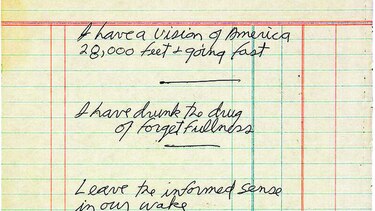 I have a vision of America
28,000 feet + going fast
I have drunk the drug
of forgetfullness
Leave the informed sense
in our wake